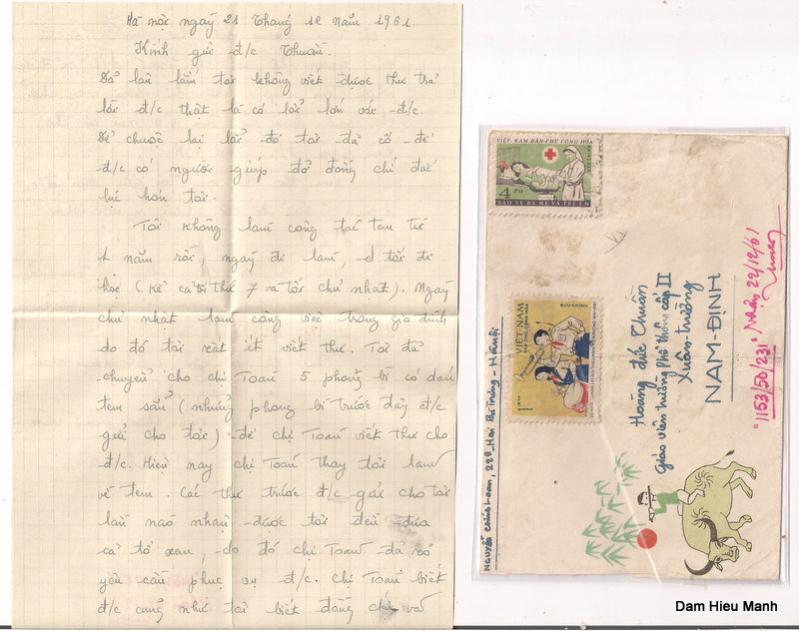 Hà nội ngày 21 Tháng 12 năm 1961
Kính gửi đ/c Thuần.
lần tôi không viết được thư trả
lời đ/c thật là có lỗi lớn với đ/c.
Để chuộc lại lỗi đó tôi đã cố để
đ/c có người giúp đỡ đồng chí đắc
lực hơn tôi.
Tôi không làm công tác tem từ
1 năm rồi, ngày đi làm, tối đi
học (kể cả thứ 7 và tối chủ nhật). Ngày
chủ nhật làm công việc trong gia đình
do đó tôi rất ít viết thư. Tôi đã
chuyển cho chị Toàn 5 phong bì có dán
tem sẵn (những phong bì trước đây đ/c
gửi cho tôi) để chị Toàn viết thư cho
đ/c. Hiện nay chị Toàn thay tôi làm
về tem. Các thư trước đ/c gửi cho tôi
lần nào nhận được tôi đều đưa
cả tổ xem, do đó chị Toàn đã có
yêu cầu phục vụ đ/c. Chị Toàn biết
đ/c cũng như tôi biết đồng chí và
VIỆT-NAM DÂN-CHỦ CỘNG-HÒA
4 xu
BẢO VỆ BÀ MẸ VÀ TRẺ EM
BƯU CHÍNH
VIỆT-NAM
DÂN CHỦ CỘNG HÒA
1
Nguyễn Chính Lam, 228 Hai Bà Trưng - Hà nội
Hoàng đức Thuần
Giáo viên trường Phổ thông cấp II
Xuân-trường
NAM-ĐỊNH
"1153/50/231" Nhận 22/12/61
Dam Hieu Manh